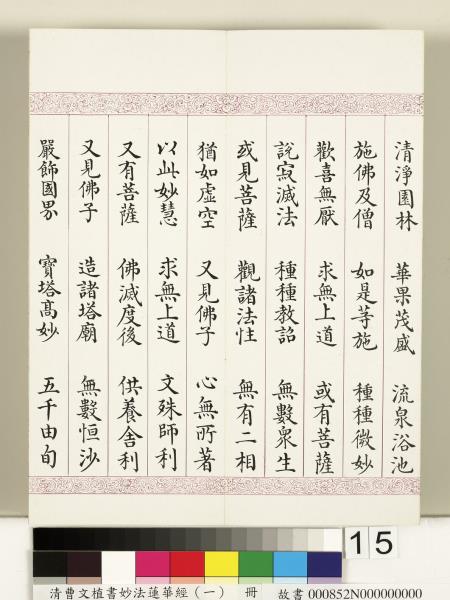 清淨園林 華果茂盛 流泉浴池
施佛及僧 如是等施 種種微妙
歡喜無厭 求無上道 或有菩薩
說寂滅法 種種教詔 無數眾生
或見菩薩 觀諸法性 無有二相
猶如虛空 又見佛子 心無所著
以此妙慧 求無上道 文殊師利
又有菩薩 佛滅度後 供養舍利
又見佛子 造諸塔廟 無數恒沙
嚴飾國界 寶塔高妙 五千由旬
15
清曹文植書妙法蓮華經(一) 冊 故書 000852N000000000